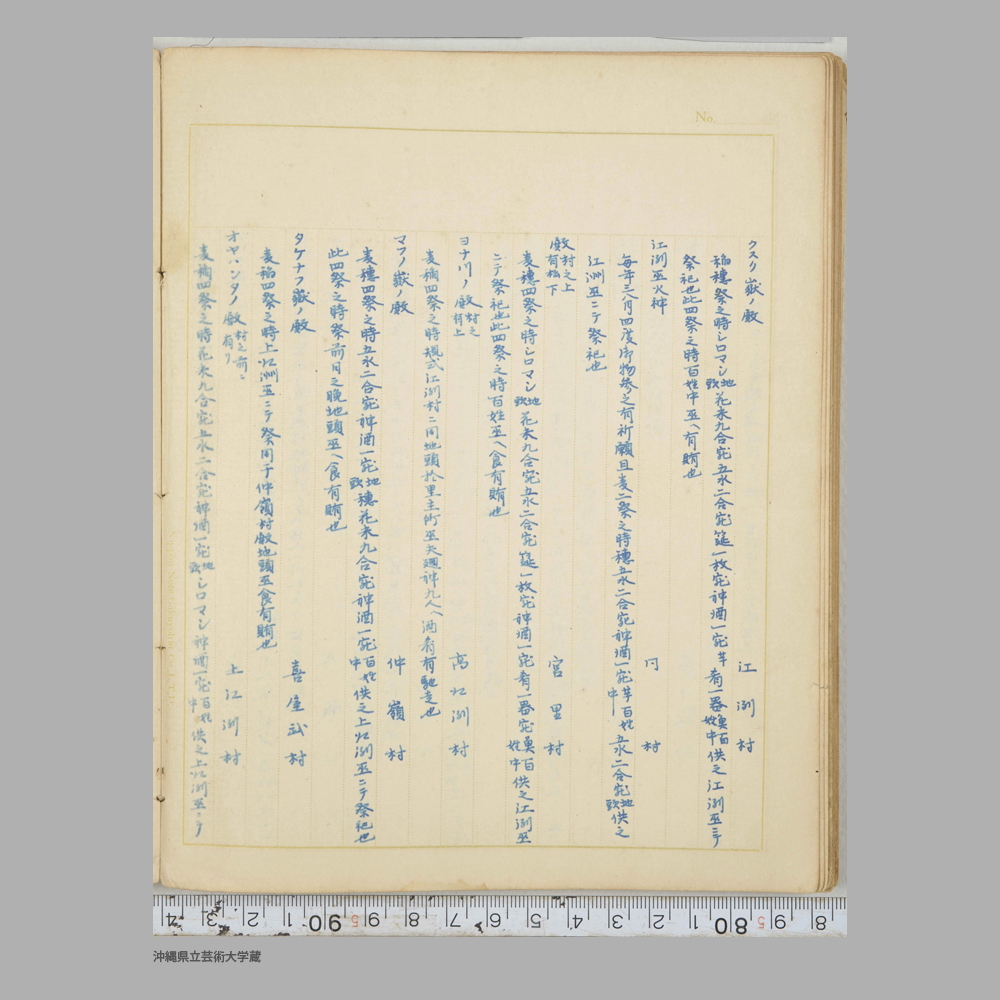 No.
クスク嶽ノ殿 江洌村
稲穂祭之時シロマシ地頭花米九合宛五水二合宛筵一枚宛神酒一宛芋肴一器奠百姓中供之江洌巫ニテ
祭祀也此四祭之時百姓中巫ヘ有賄也
江洌巫火神 同村
毎年三八月四度御物参之有祈願且麦二祭之時穂五水二合宛神酒一宛芋百姓中五水二合宛地頭供之
江洌巫ニテ祭祀也
殿村之上有橋下 宮里村
麦穂四祭之時シロマシ地頭花米九合宛五水二合宛筵一枚宛神酒一宛肴一器宛奠百姓中供之江洌巫
ニテ祭祀也此四祭之時百姓巫ヘ食有賄也
ヨナ川ノ殿村之有上 高江洌村
麦稲四祭之時規式江洌村ニ同地頭於里主所巫夫廻神九人ヘ酒肴有馳走也
マフノ嶽ノ殿 仲嶺村
麦穂四祭之時五水二合宛神酒一宛地頭穂花米九合宛神酒一宛百姓中供之上江洌巫ニテ祭祀也
此四祭之時祭前日之晩地頭巫ヘ食有賄也
タケナフ嶽ノ殿 喜屋武村
麦稲四祭之時上江洲巫ニテ祭同于仲嶺村殿地頭巫食有賄也
オヤハンタノ殿村之前ニ有リ 上江洌村
麦稲四祭之時花米九合宛五水二合宛神酒一宛地頭シロマシ神酒一宛百姓中供之上江洌巫ニテ
8 5 80 1 2 3 4 5 6 7 8 9 5 90 1 2 3 4
沖縄県立芸術大学蔵